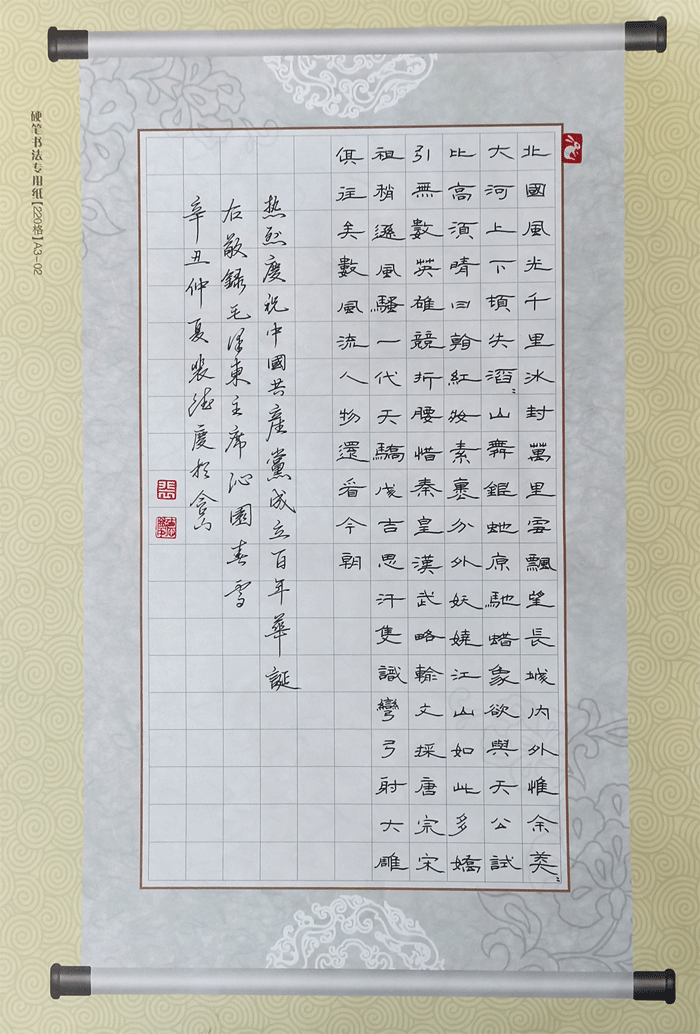 北國風光千里冰封萬里雪飄望長城内外惟余莽〻
大河上下頓失滔〻山舞銀蛇原馳蜡象欲與天公試
比高須晴日看紅妝素裹分外妖嬈江山如此多嬌
引無數英雄競折腰惜秦皇漢武略輸文採唐宗宋
祖稍遜風騷一代天驕成吉思汗隻識彎弓射大雕
俱往矣數風流人物還看今朝
热烈慶祝中國共産黨成立百年華誕
右敬録毛澤東主席沁園春雪
辛丑仲夏裴德慶於
裴
硬笔书法专用纸【220格】A3-02